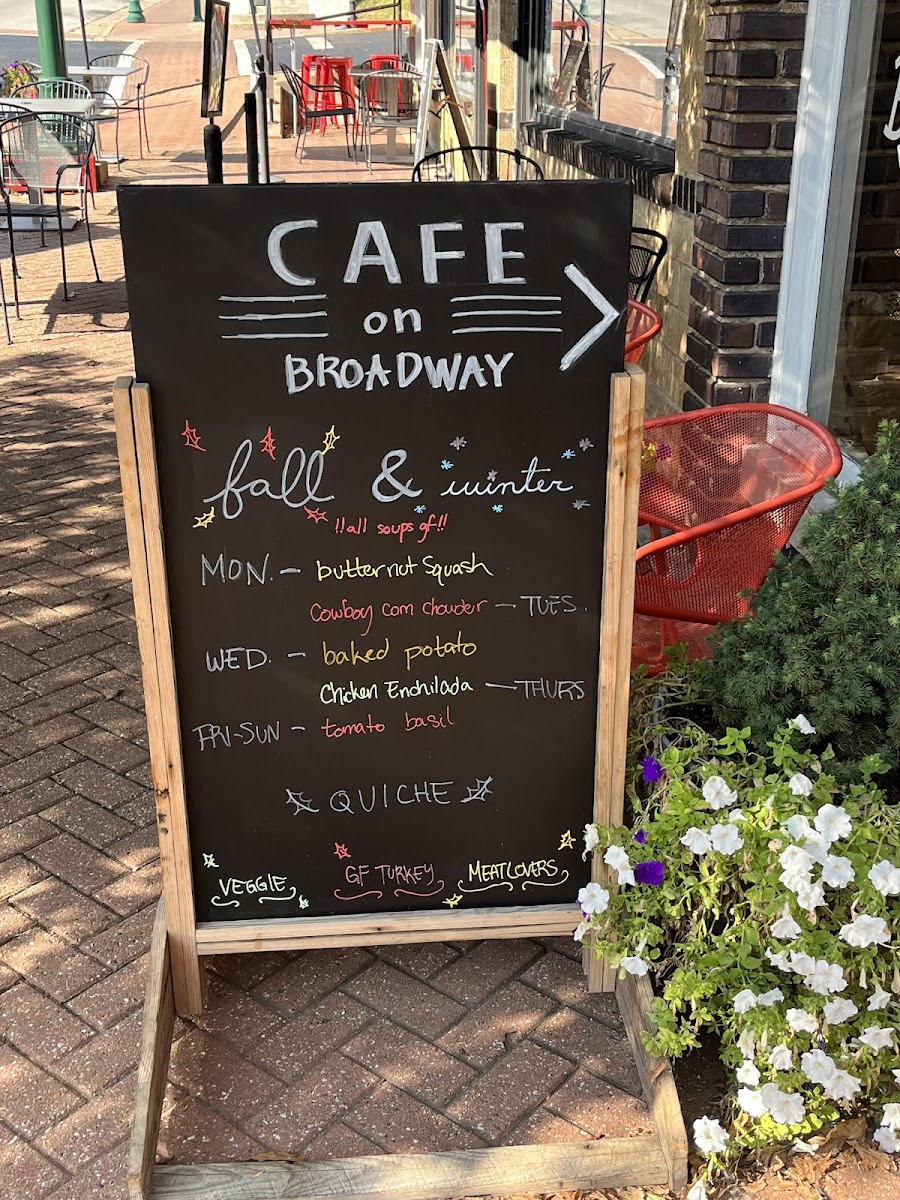 CAFE
on
BROADWAY
fall & winter
!!all soups gf!!
MON. - butternut Squash
Cowboy corn chowder - TUES.
WED. - baked potato
Chicken Enchilada - THURS
FRI-SUN - tomato basil
QUICHE
VEGGIE GF TURKEY MEATLOVERS